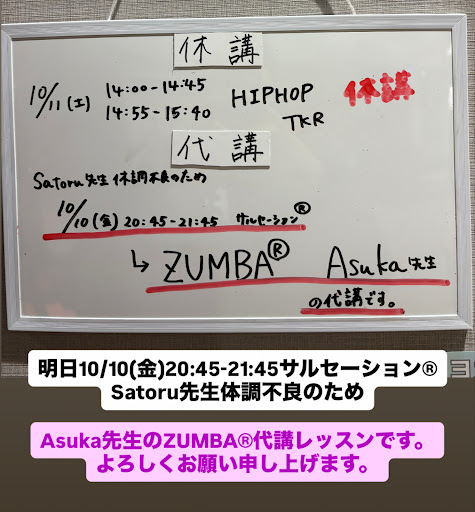 休講
10/11(土) 14:00-14:45 HIPHOP 休講
14:55-15:40 TKR
代講
Satoru先生体調不良のため
10/10(金) 20:45-21:45 サルセーション®
↳ ZUMBA® Asuka先生
の代講です。
明日10/10(金)20:45-21:45サルセーション®
Satoru先生体調不良のため
Asuka先生のZUMBA®代講レッスンです。
よろしくお願い申し上げます。